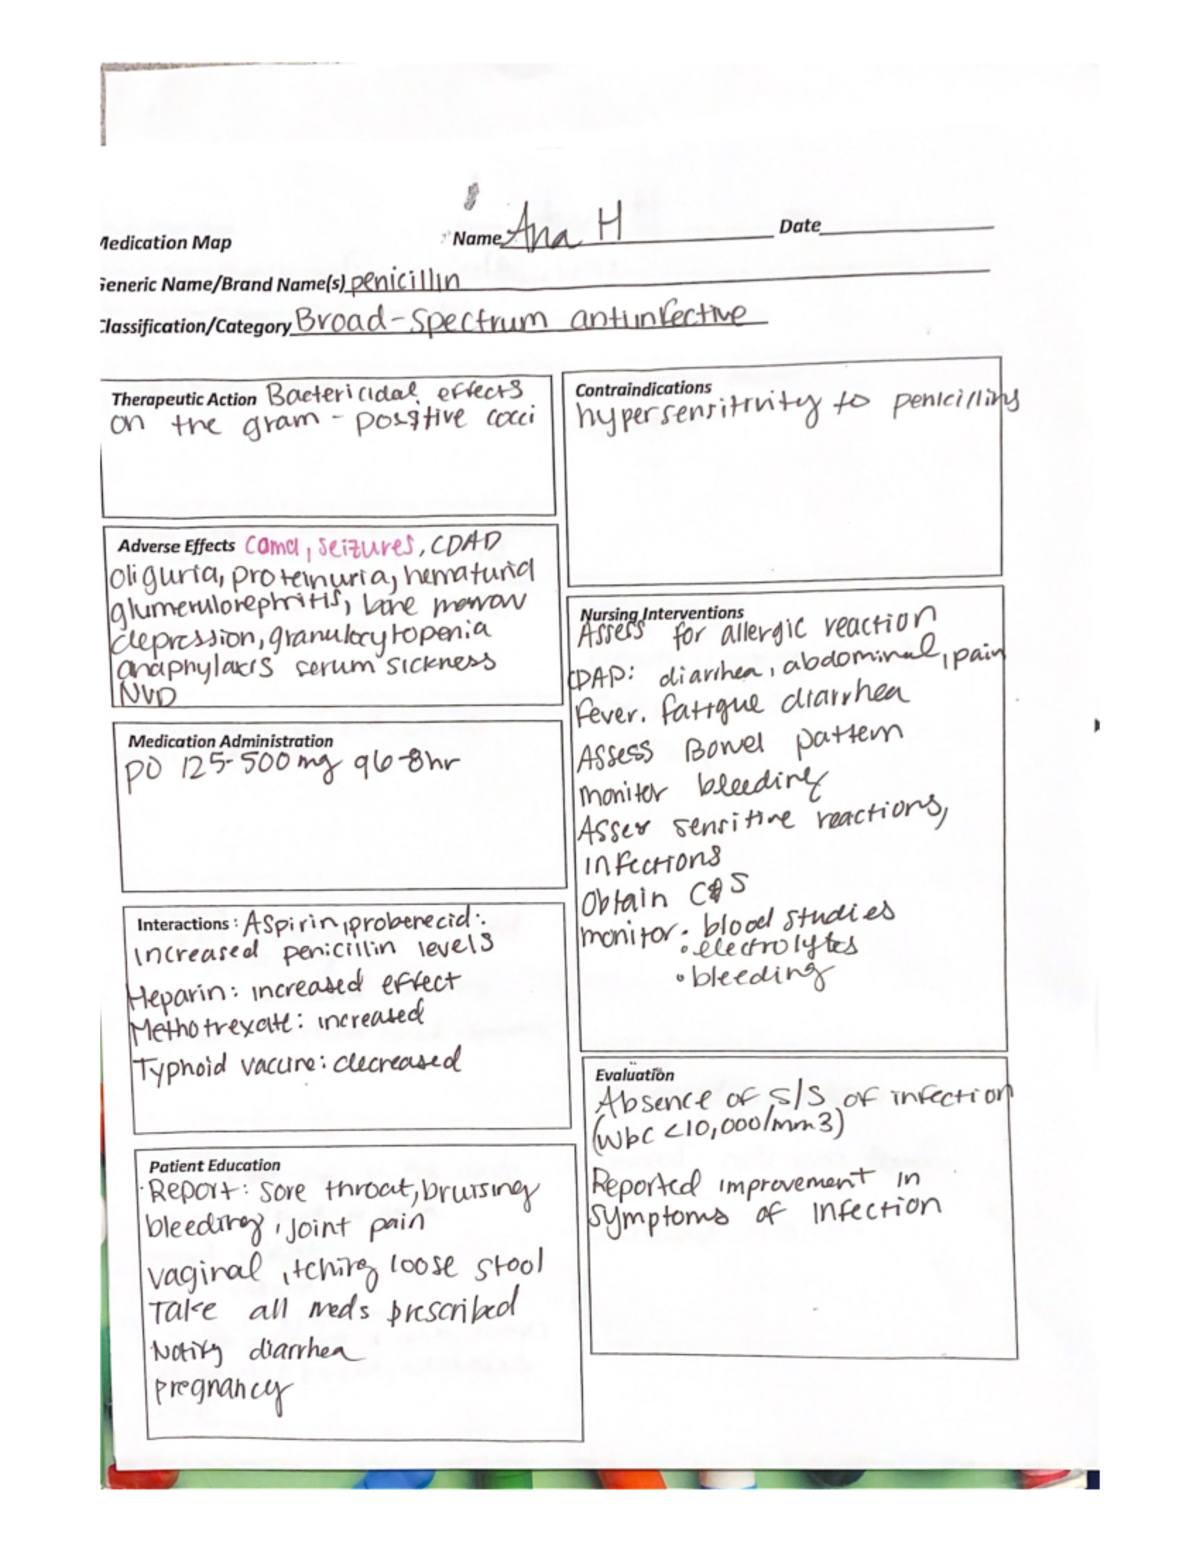 Medication Map
Name Ana H Date
Generic Name/Brand Name(s) penicillin
Classification/Category Broad-spectrum antiinfective
Therapeutic Action Bactericidal effects
on the gram - positive cocci
Adverse Effects coma, seizures, CDAD
oliguria, proteinuria, hematuria
glumerulonephritis, bone marrow
depression, granulocytopenia
anaphylaxis serum sickness
NVD
Medication Administration
PO 125-500mg q6-8hr
Interactions: Aspirin, probenecid:
increased penicillin levels
Heparin: increased effect
Methotrexate: increased
Typhoid vaccine: decreased
Patient Education
Report: sore throat, bruising
bleeding, joint pain
vaginal itching loose stool
Take all meds prescribed
Notify diarrhea
pregnancy
Contraindications
hypersensitivity to penicillins
Nursing Interventions
Assess for allergic reaction
CDAD: diarrhea, abdominal, pain
fever. fatigue diarrhea
Assess Bowel pattern
monitor bleeding
Assess sensitive reactions,
infections
Obtain C&S
monitor: blood studies
• electrolytes
• bleeding
Evaluation
Absence of S/S of infection
(WBC <10,000/mm3)
Reported improvement in
symptoms of infection